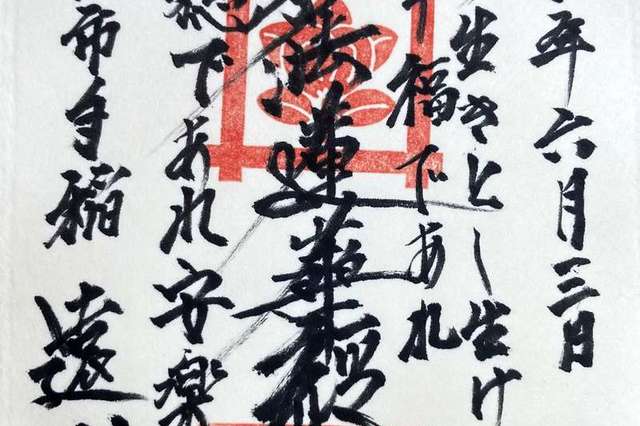 年六月三日
生きとし生け
福であれ
法蓮華経
であれ安楽
市手稲 遠